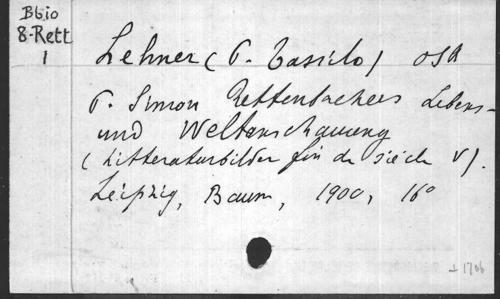 Bbio
8-Rett
1
Lehner (P. Tassilo) OSB
P. Simon Rettenbachers Lebens-
und Weltanschauung
(Litteraturbilder fin de siècle V).
Leipzig, Baum, 1900, 16°